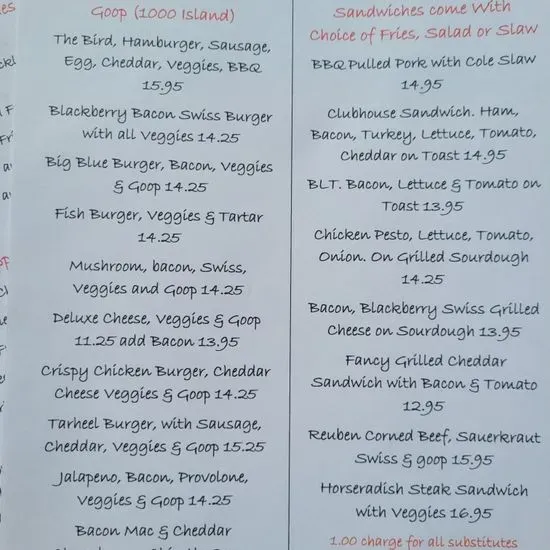 Goop (1000 Island)
The Bird, Hamburger, Sausage,
Egg, Cheddar, Veggies, BBQ
15.95
Blackberry Bacon Swiss Burger
with all Veggies 14.25
Big Blue Burger, Bacon, Veggies
& Goop 14.25
Fish Burger, Veggies & Tartar
14.25
Mushroom, bacon, Swiss,
Veggies and Goop 14.25
Deluxe Cheese, Veggies & Goop
11.25 add Bacon 13.95
Crispy Chicken Burger, Cheddar
Cheese Veggies & Goop 14.25
Tarheel Burger, with Sausage,
Cheddar, Veggies & Goop 15.25
Jalapeno, Bacon, Provolone,
Veggies & Goop 14.25
Bacon Mac & Cheddar
Sandwiches come With
Choice of Fries, Salad or Slaw
BBQ Pulled Pork with Cole Slaw
14.95
Clubhouse Sandwich. Ham,
Bacon, Turkey, Lettuce, Tomato,
Cheddar on Toast 14.95
BLT. Bacon, Lettuce & Tomato on
Toast 13.95
Chicken Pesto, Lettuce, Tomato,
Onion. On Grilled Sourdough
14.25
Bacon, Blackberry Swiss Grilled
Cheese on Sourdough 13.95
Fancy Grilled Cheddar
Sandwich with Bacon & Tomato
12.95
Reuben Corned Beef, Sauerkraut
Swiss & goop 15.95
Horseradish Steak Sandwich
with Veggies 16.95
1.00 charge for all substitutes